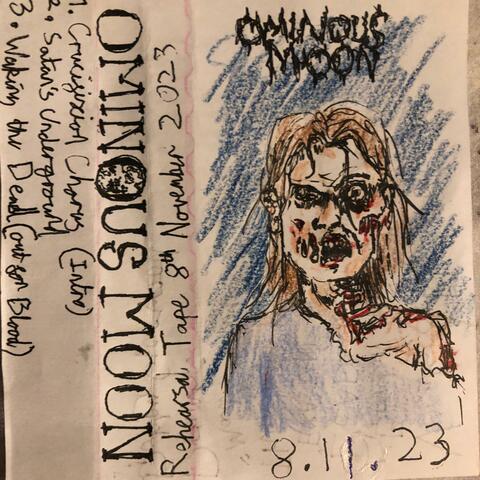 OMINOUS
MOON
8.11.23
OMINOUS MOON
Rehearsal Tape 8th November 2023
1. Crucifixion Chorus (Intro)
2. Satan's Underground
3. Waking the Dead (Blood)